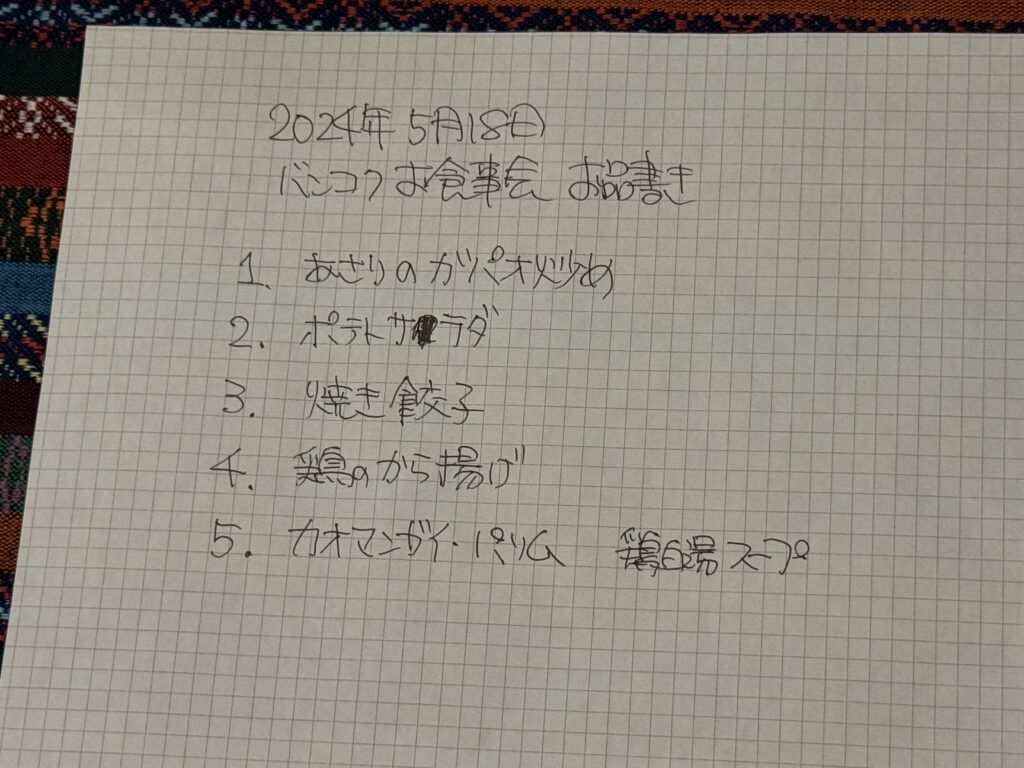 2024年5月18日
バンコクお食事会 お品書き
1. あさりのガパオ炒め
2. ポテトサラダ
3. 焼き餃子
4. 鶏のから揚げ
5. カオマンガイ・パリム 鶏白湯スープ